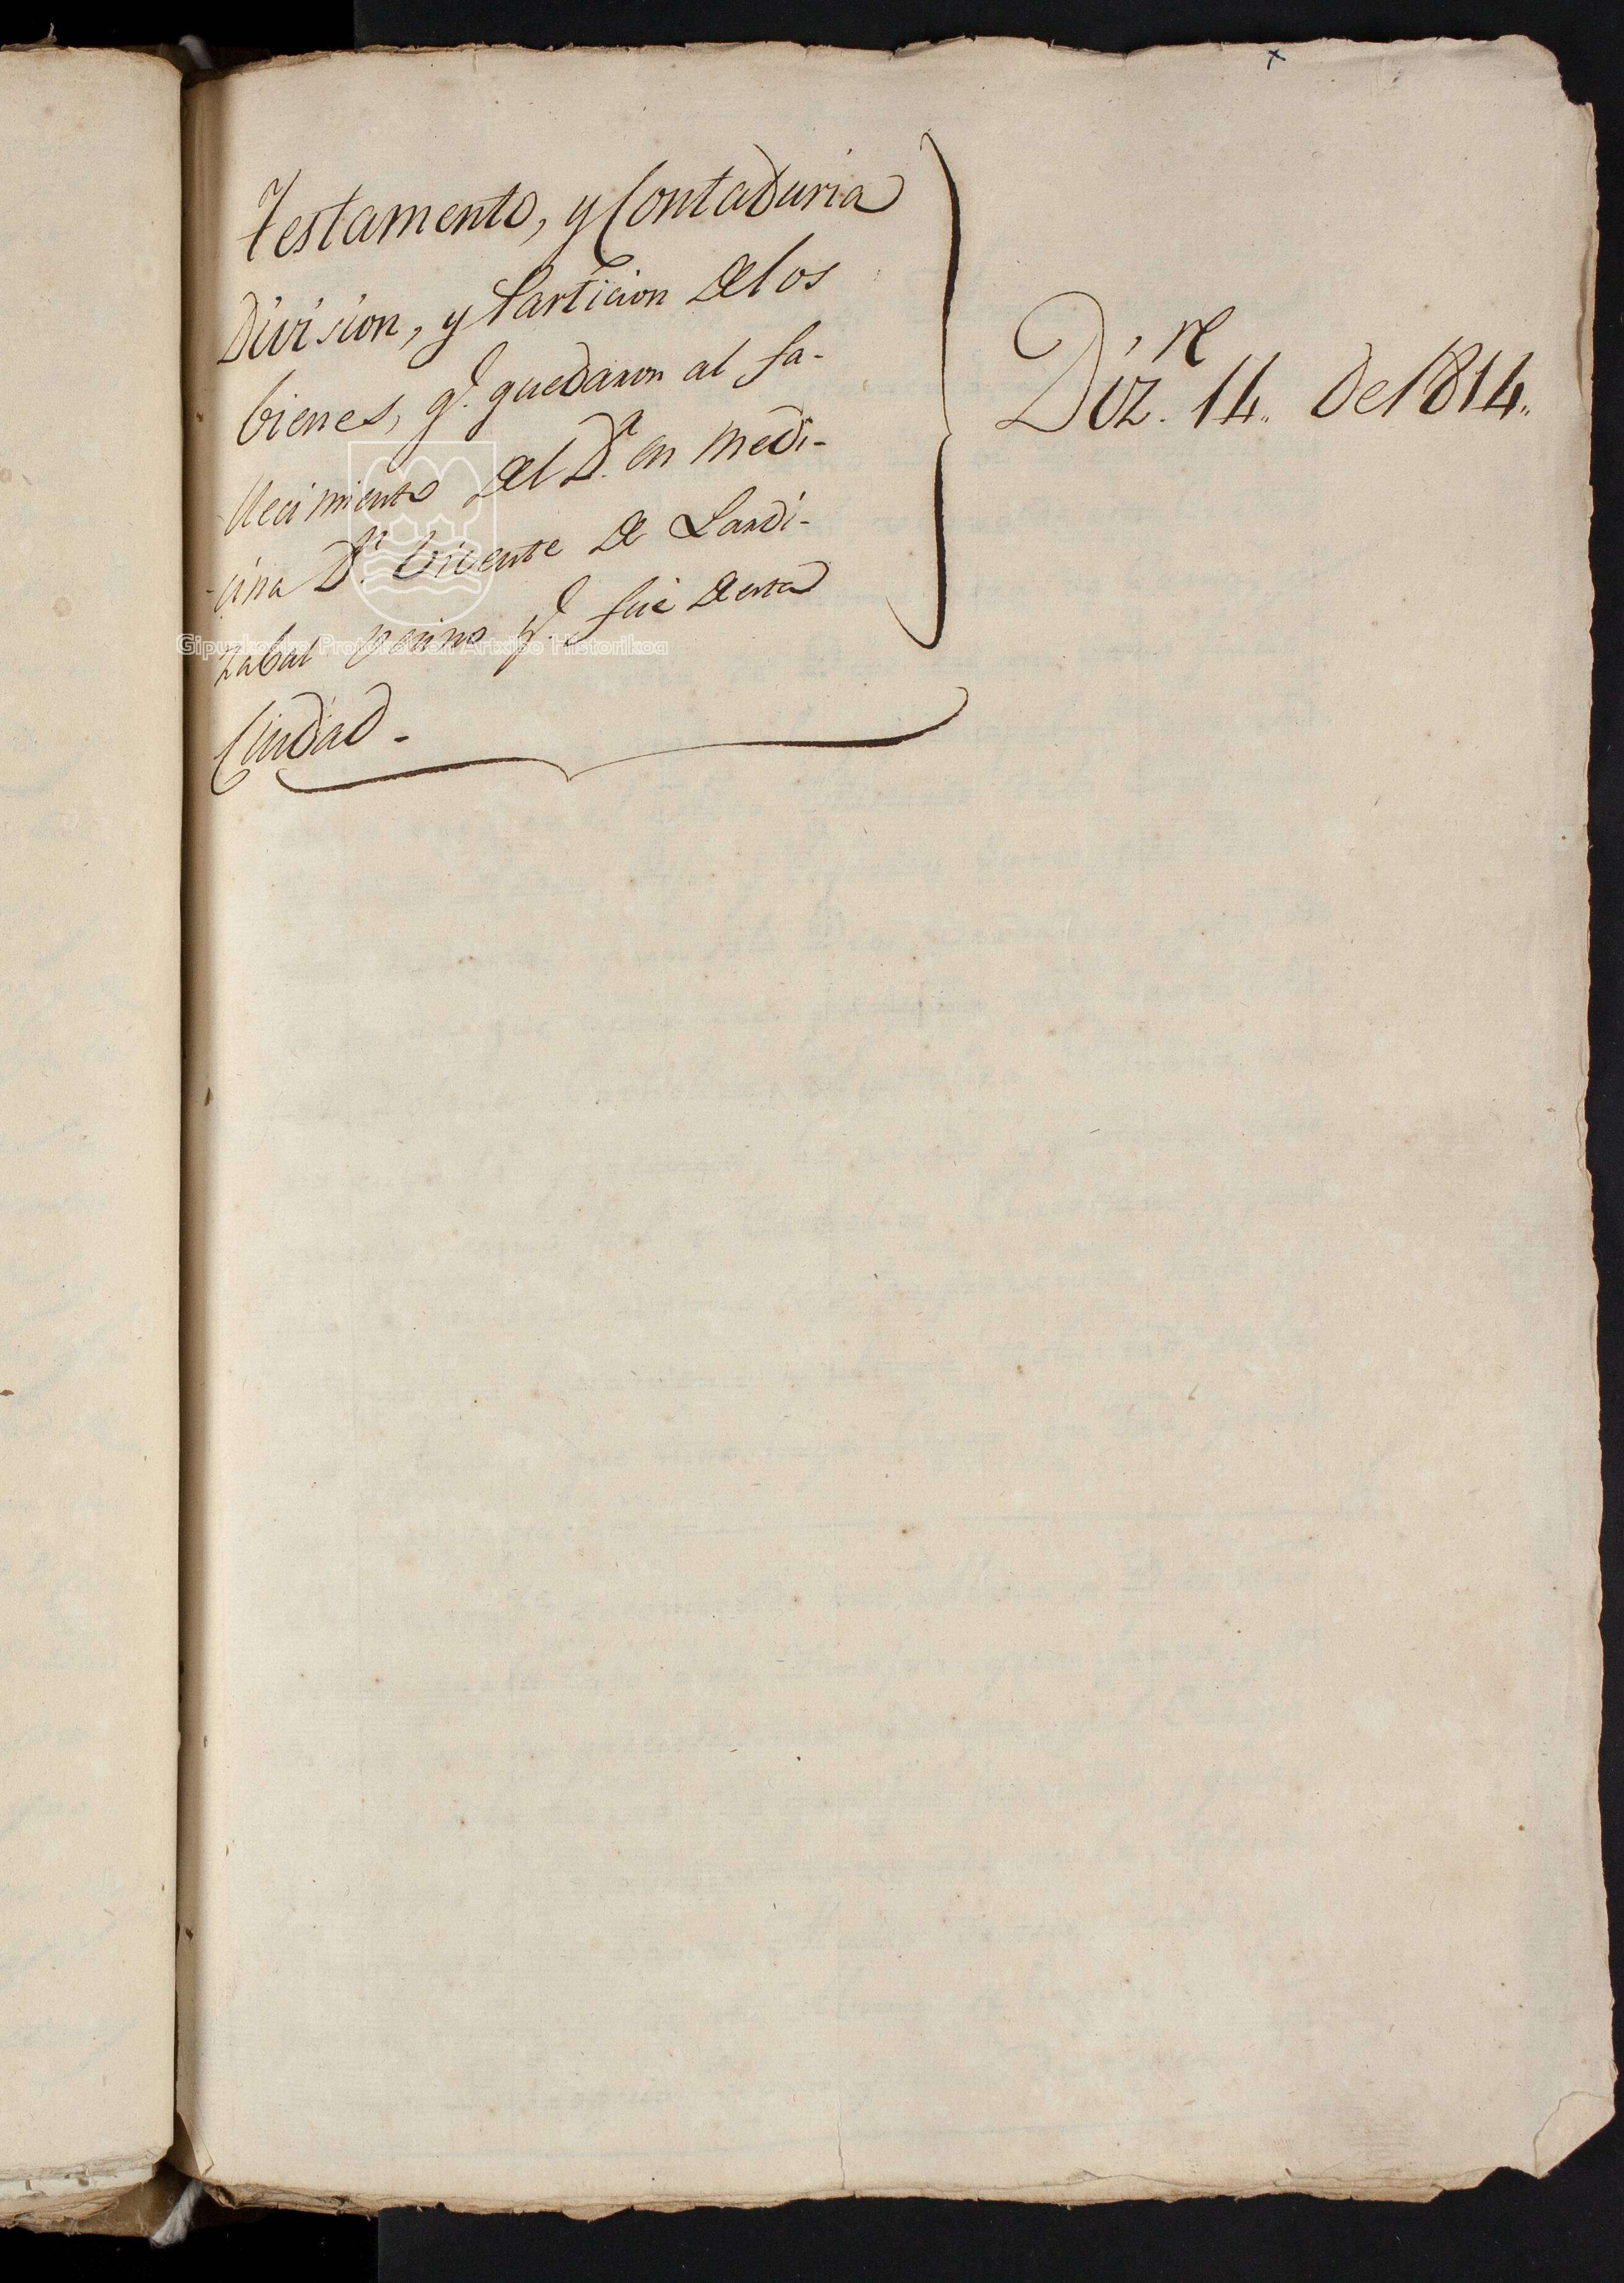 Testamento, y Contaduria
Division, y Particion delos
bienes, q.e quedaron al fa-
llecimiento del D.r en Medi-
cina D.n Vicente de Lardi-
zabal vecino q.e fué de esta
Ciudad.-
Diz.re 14.. de 1814..
Gipuzkoako Protokoloen Artxibo Historikoa